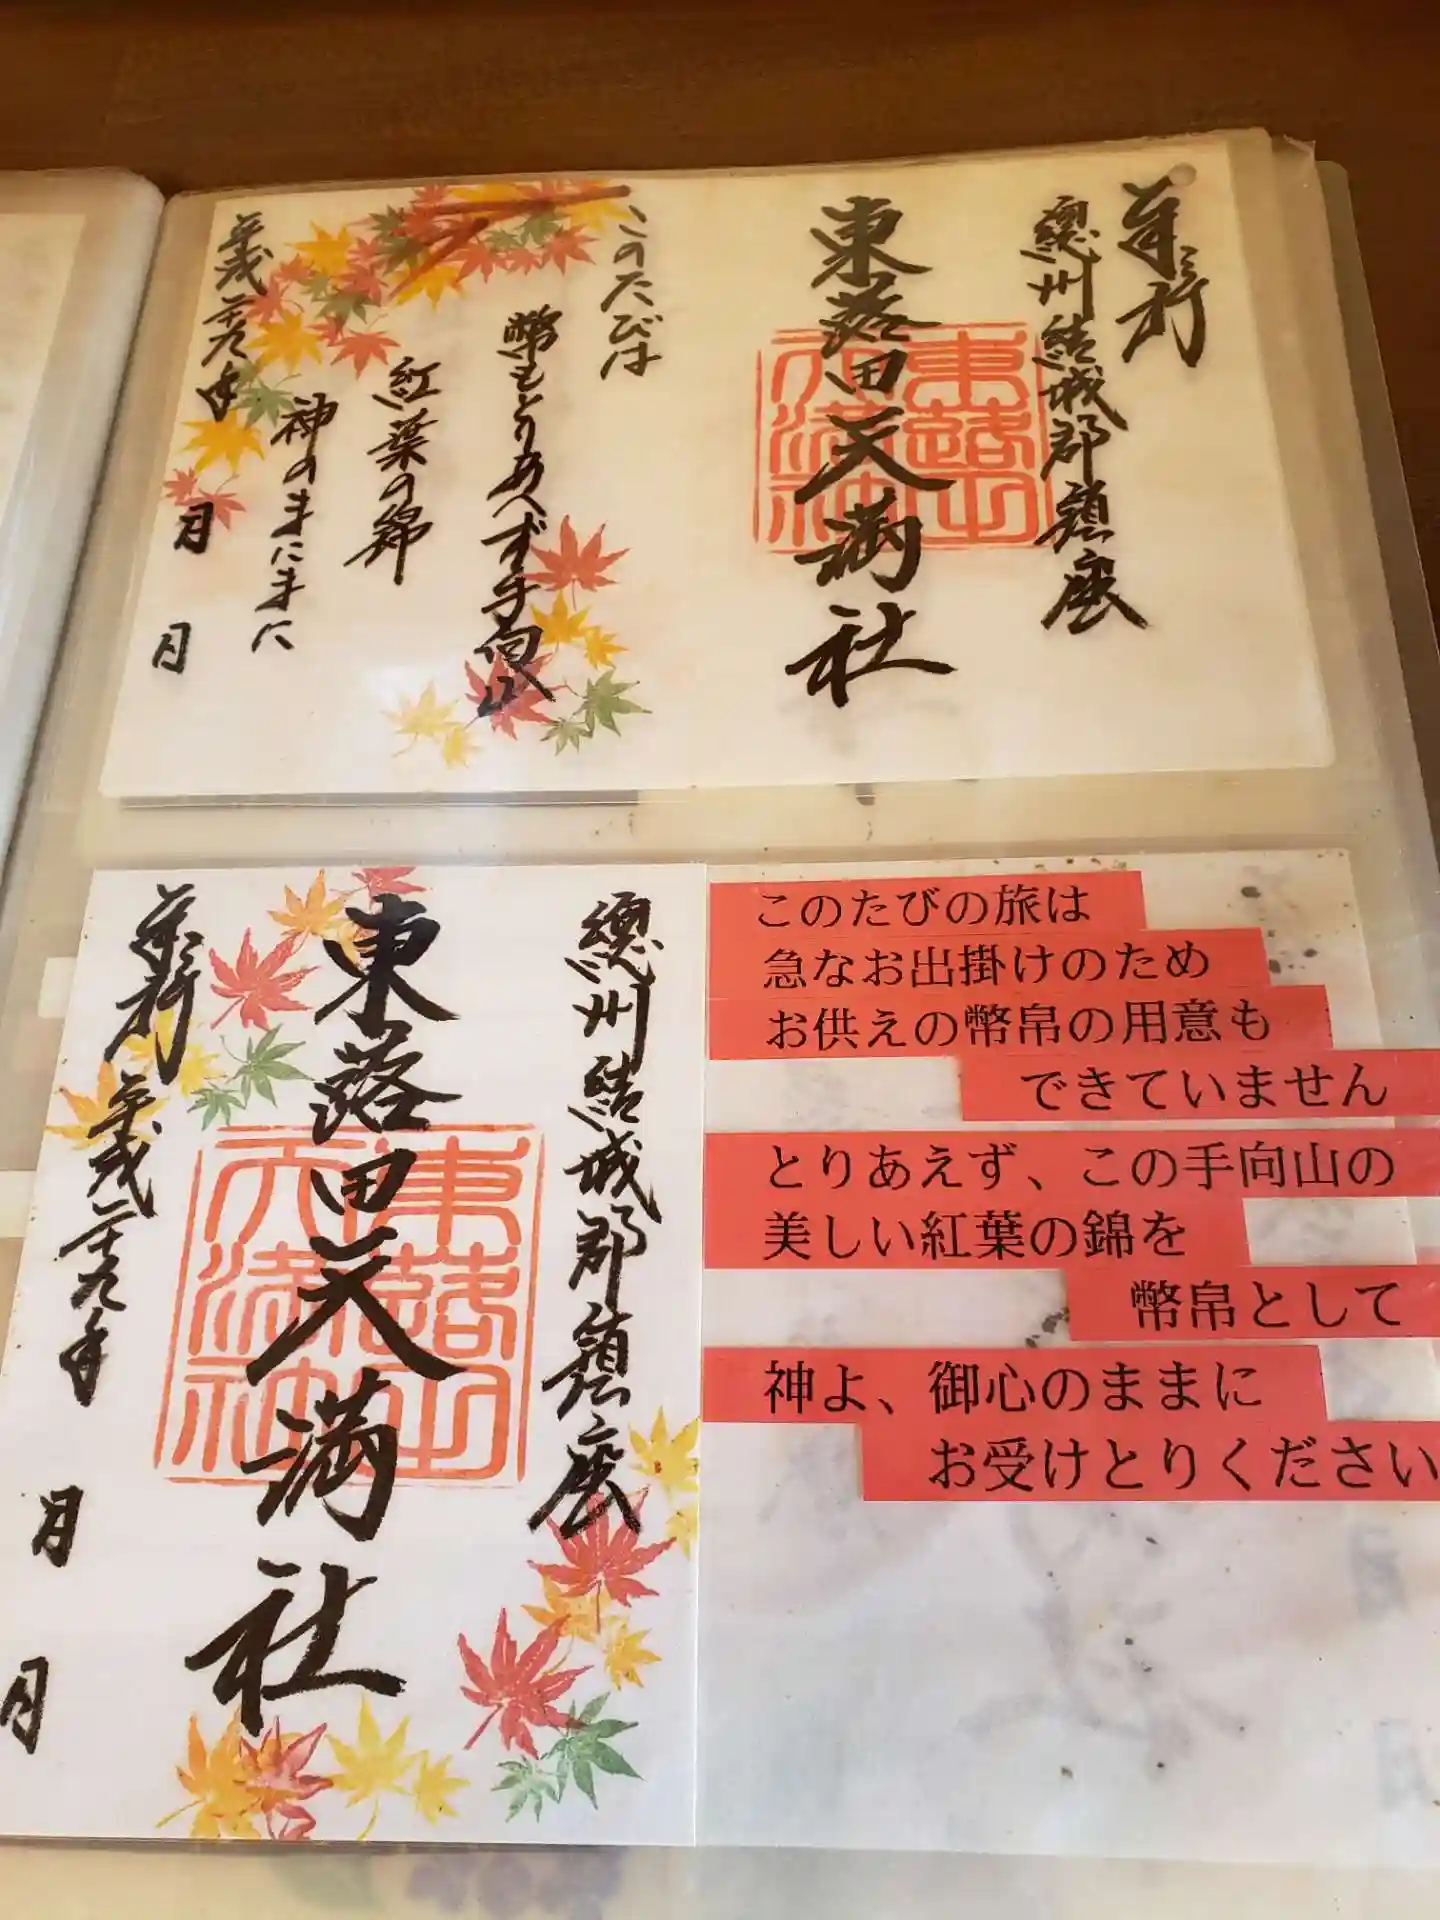 葦行
總州結城郡鎮座
東蕗田天満社
このたびは
幣もとりあへず手向山
紅葉の錦
神のまにまに
平成二十九年
月
日
總州結城郡鎮座
東蕗田天満社
平成二十九年
月
日
このたびの旅は
急なお出掛けのため
お供えの幣帛の用意も
できていません
とりあえず、この手向山の
美しい紅葉の錦を
幣帛として
神よ、御心のままに
お受けとりください